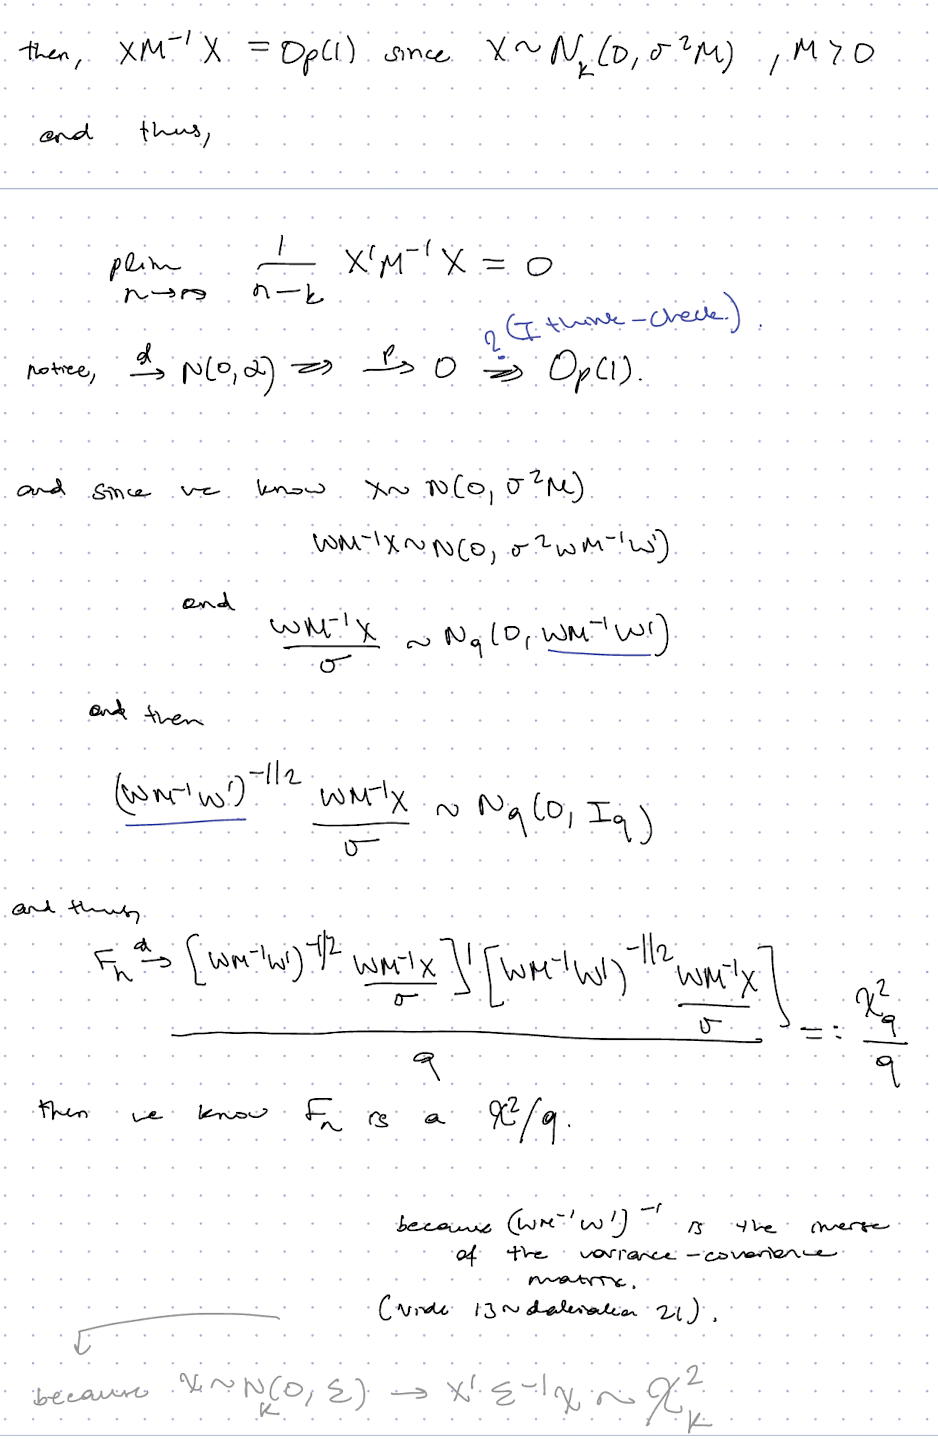 then, XM⁻¹X = Op(1) since X ~ N_k(0, σ²M), M > 0
and thus,
plim n→∞ 1/(n-k) X'M⁻¹X = 0
? (I think - check).
notice, →d N(0,α) ⇒ →p 0 ⇒ Op(1).
and since we know X ~ N(0, σ²M)
WM⁻¹X ~ N(0, σ²WM⁻¹W')
and
WM⁻¹X/σ ~ N_q(0, WM⁻¹W')
and then
(WM⁻¹W')^(-1/2) WM⁻¹X/σ ~ N_q(0, I_q)
and thus,
F_n →d [(WM⁻¹W')^(-1/2) WM⁻¹X/σ]' [(WM⁻¹W')^(-1/2) WM⁻¹X/σ] / q =: χ²_q/q
then we know F_n is a χ²/q.
because (WM⁻¹W')⁻¹ is the inverse
of the variance-covariance
matrix.
21).
because x ~ N_k(0, Σ) → x'Σ⁻¹x ~ χ²_k